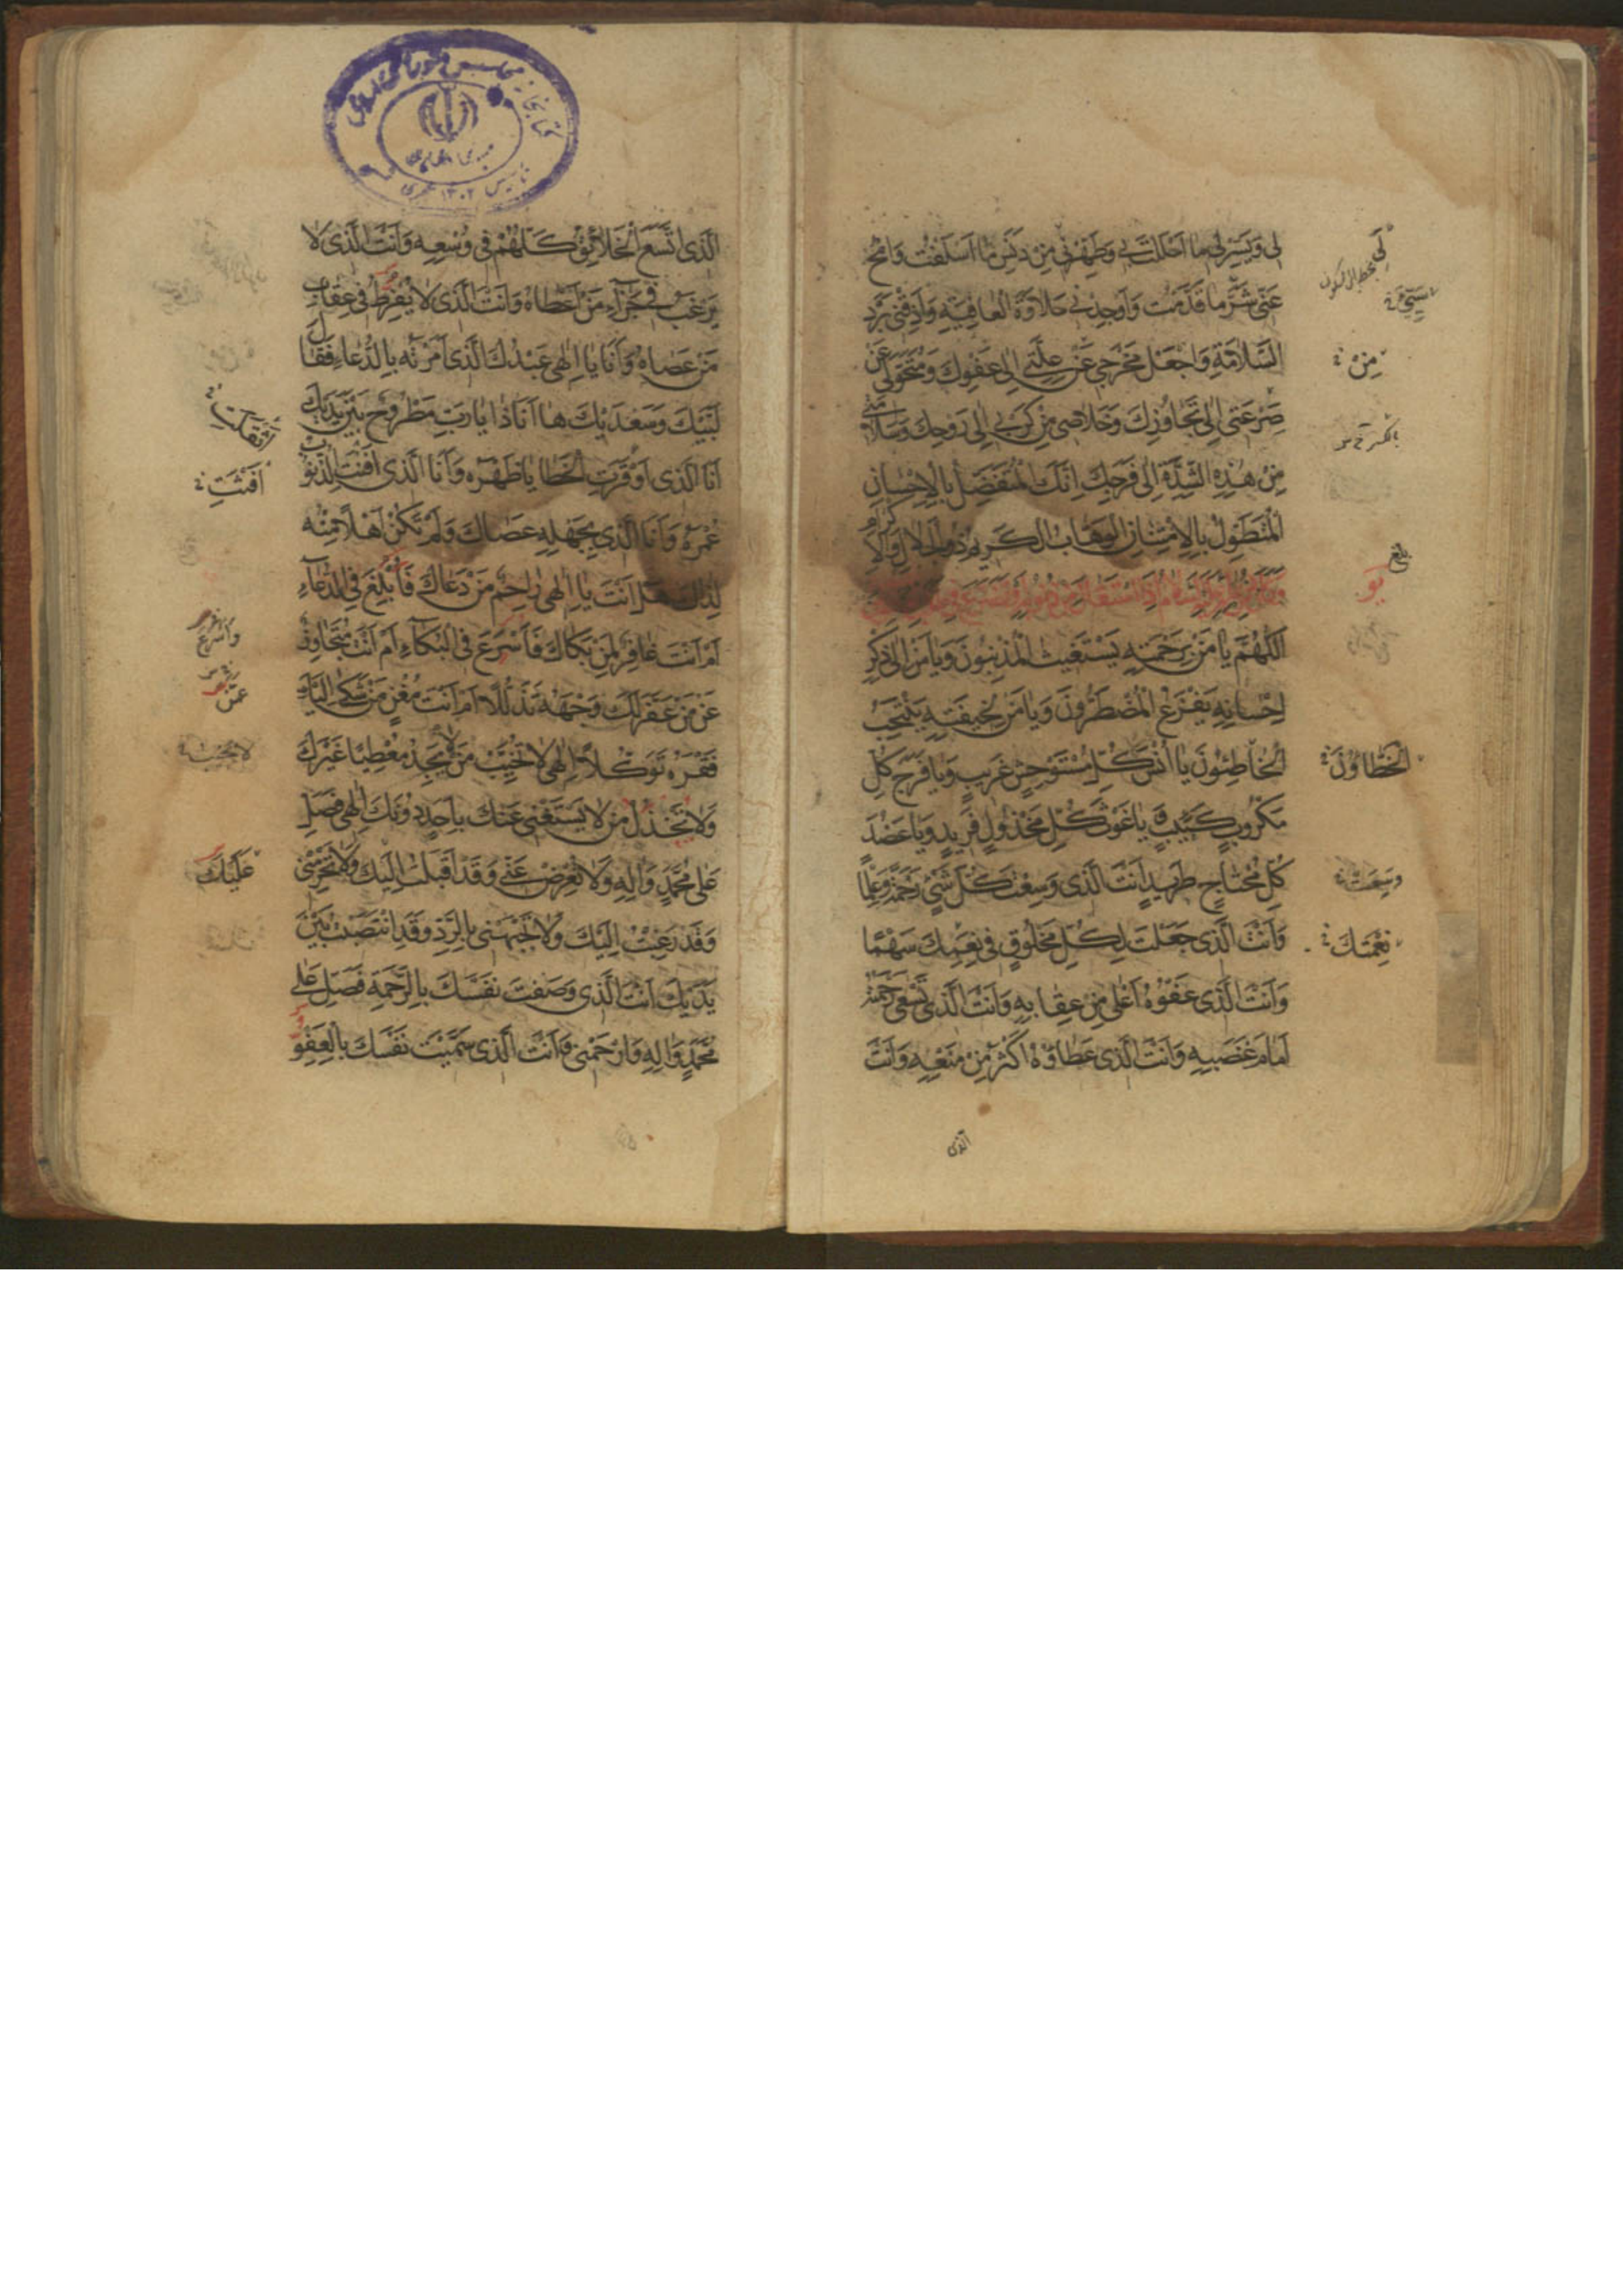 لى وَيَسِّرْ لى ما اَحْلَلْتَ بى وَطَهِّرْنى مِنْ دَنَسِ ما اَسْلَفْتُ وَامْحُ
عَنّى شَرَّ ما قَدَّمْتُ وَاَوْجِدْنى حَلاوَةَ الْعافِيَةِ وَاَذِقْنى بَرْدَ
السَّلامَةِ وَاجْعَلْ مَخْرَجى عَنْ عِلَّتى اِلى عَفْوِكَ وَمُتَحَوَّلى عَنْ
صَرْعَتى اِلى تَجاوُزِكَ وَخَلاصى مِنْ كَرْبى اِلى رَوْحِكَ وَسَلامَتى
مِنْ هٰذِهِ الشِّدَّةِ اِلى فَرَجِكَ اِنَّكَ الْمُتَفَضِّلُ بِالْاِحْسانِ
الْمُتَطَوِّلُ بِالْاِمْتِنانِ الْوَهّابُ الْكَريمُ ذُو الْجَلالِ وَالْاِكْرامِ
اَللّٰهُمَّ يا مَنْ بِرَحْمَتِهِ يَسْتَغيثُ الْمُذْنِبُونَ وَيا مَنْ اِلى ذِكْرِ
اِحْسانِهِ يَفْزَعُ الْمُضْطَرُّونَ وَيا مَنْ لِخيفَتِهِ يَنْتَحِبُ
الْخاطِئُونَ يا اُنْسَ كُلِّ مُسْتَوْحِشٍ غَريبٍ وَيا فَرَجَ كُلِّ
مَكْرُوبٍ كَئيبٍ وَيا غَوْثَ كُلِّ مَخْذُولٍ فَريدٍ وَيا عَضُدَ
كُلِّ مُحْتاجٍ طَريدٍ اَنْتَ الَّذى وَسِعْتَ كُلَّ شَىْءٍ رَحْمَةً وَعِلْمًا
وَاَنْتَ الَّذى جَعَلْتَ لِكُلِّ مَخْلُوقٍ فى نِعَمِكَ سَهْمًا
وَاَنْتَ الَّذى عَفْوُهُ اَعْلى مِنْ عِقابِهِ وَاَنْتَ الَّذى تَسْعى رَحْمَتُهُ
اَمامَ غَضَبِهِ وَاَنْتَ الَّذى عَطاؤُهُ اَكْثَرُ مِنْ مَنْعِهِ وَاَنْتَ
الَّذى
مِنْ
بلغ
يو
الْخَطّاؤُنَ
وَسِعَتْ
نِعْمَتِكَ
الَّذى اتَّسَعَ الْخَلائِقُ كُلُّهُمْ فى وُسْعِهِ وَاَنْتَ الَّذى لا
يَرْغَبُ فى جَزاءِ مَنْ اَعْطاهُ وَاَنْتَ الَّذى لا يُفْرِطُ فى عِقابِ
مَنْ عَصاهُ وَاَنَا يا اِلٰهى عَبْدُكَ الَّذى اَمَرْتَهُ بِالدُّعاءِ فَقالَ
لَبَّيْكَ وَسَعْدَيْكَ ها اَنَا ذا يا رَبِّ مَطْرُوحٌ بَيْنَ يَدَيْكَ
اَنَا الَّذى اَوْقَرَتِ الْخَطايا ظَهْرَهُ وَاَنَا الَّذى اَفْنَتِ الذُّنُوبُ
عُمْرَهُ وَاَنَا الَّذى بِجَهْلِهِ عَصاكَ وَلَمْ تَكُنْ اَهْلًا مِنْهُ
لِذاكَ هَلْ اَنْتَ يا اِلٰهى راحِمٌ مَنْ دَعاكَ فَاُبْلِغَ فِى الدُّعاءِ
اَمْ اَنْتَ غافِرٌ لِمَنْ بَكاكَ فَاُسْرِعَ فِى الْبُكاءِ اَمْ اَنْتَ مُتَجاوِزٌ
عَنْ مَنْ عَفَّرَ لَكَ وَجْهَهُ تَذَلُّلًا اَمْ اَنْتَ مُغْنٍ مَنْ شَكا اِلَيْكَ
فَقْرَهُ تَوَكُّلًا اِلٰهى لا تُخَيِّبْ مَنْ لا يَجِدُ مُعْطِيًا غَيْرَكَ
وَلا تَخْذُلْ مَنْ لا يَسْتَغْنى عَنْكَ بِاَحَدٍ دُونَكَ اِلٰهى فَصَلِّ
عَلى مُحَمَّدٍ وَالِهِ وَلا تُعْرِضْ عَنّى وَقَدْ اَقْبَلْتُ اِلَيْكَ وَلا تَحْرِمْنى
وَقَدْ رَغِبْتُ اِلَيْكَ وَلا تَجْبَهْنى بِالرَّدِّ وَقَدِ انْتَصَبْتُ بَيْنَ
يَدَيْكَ اَنْتَ الَّذى وَصَفْتَ نَفْسَكَ بِالرَّحْمَةِ فَصَلِّ عَلى
مُحَمَّدٍ وَالِهِ وَارْحَمْنى وَاَنْتَ الَّذى سَمَّيْتَ نَفْسَكَ بِالْعَفْوِ
اَثْقَلَتْ
اَفْنَتْ
عَمَّنْ
عَلَيْكَ